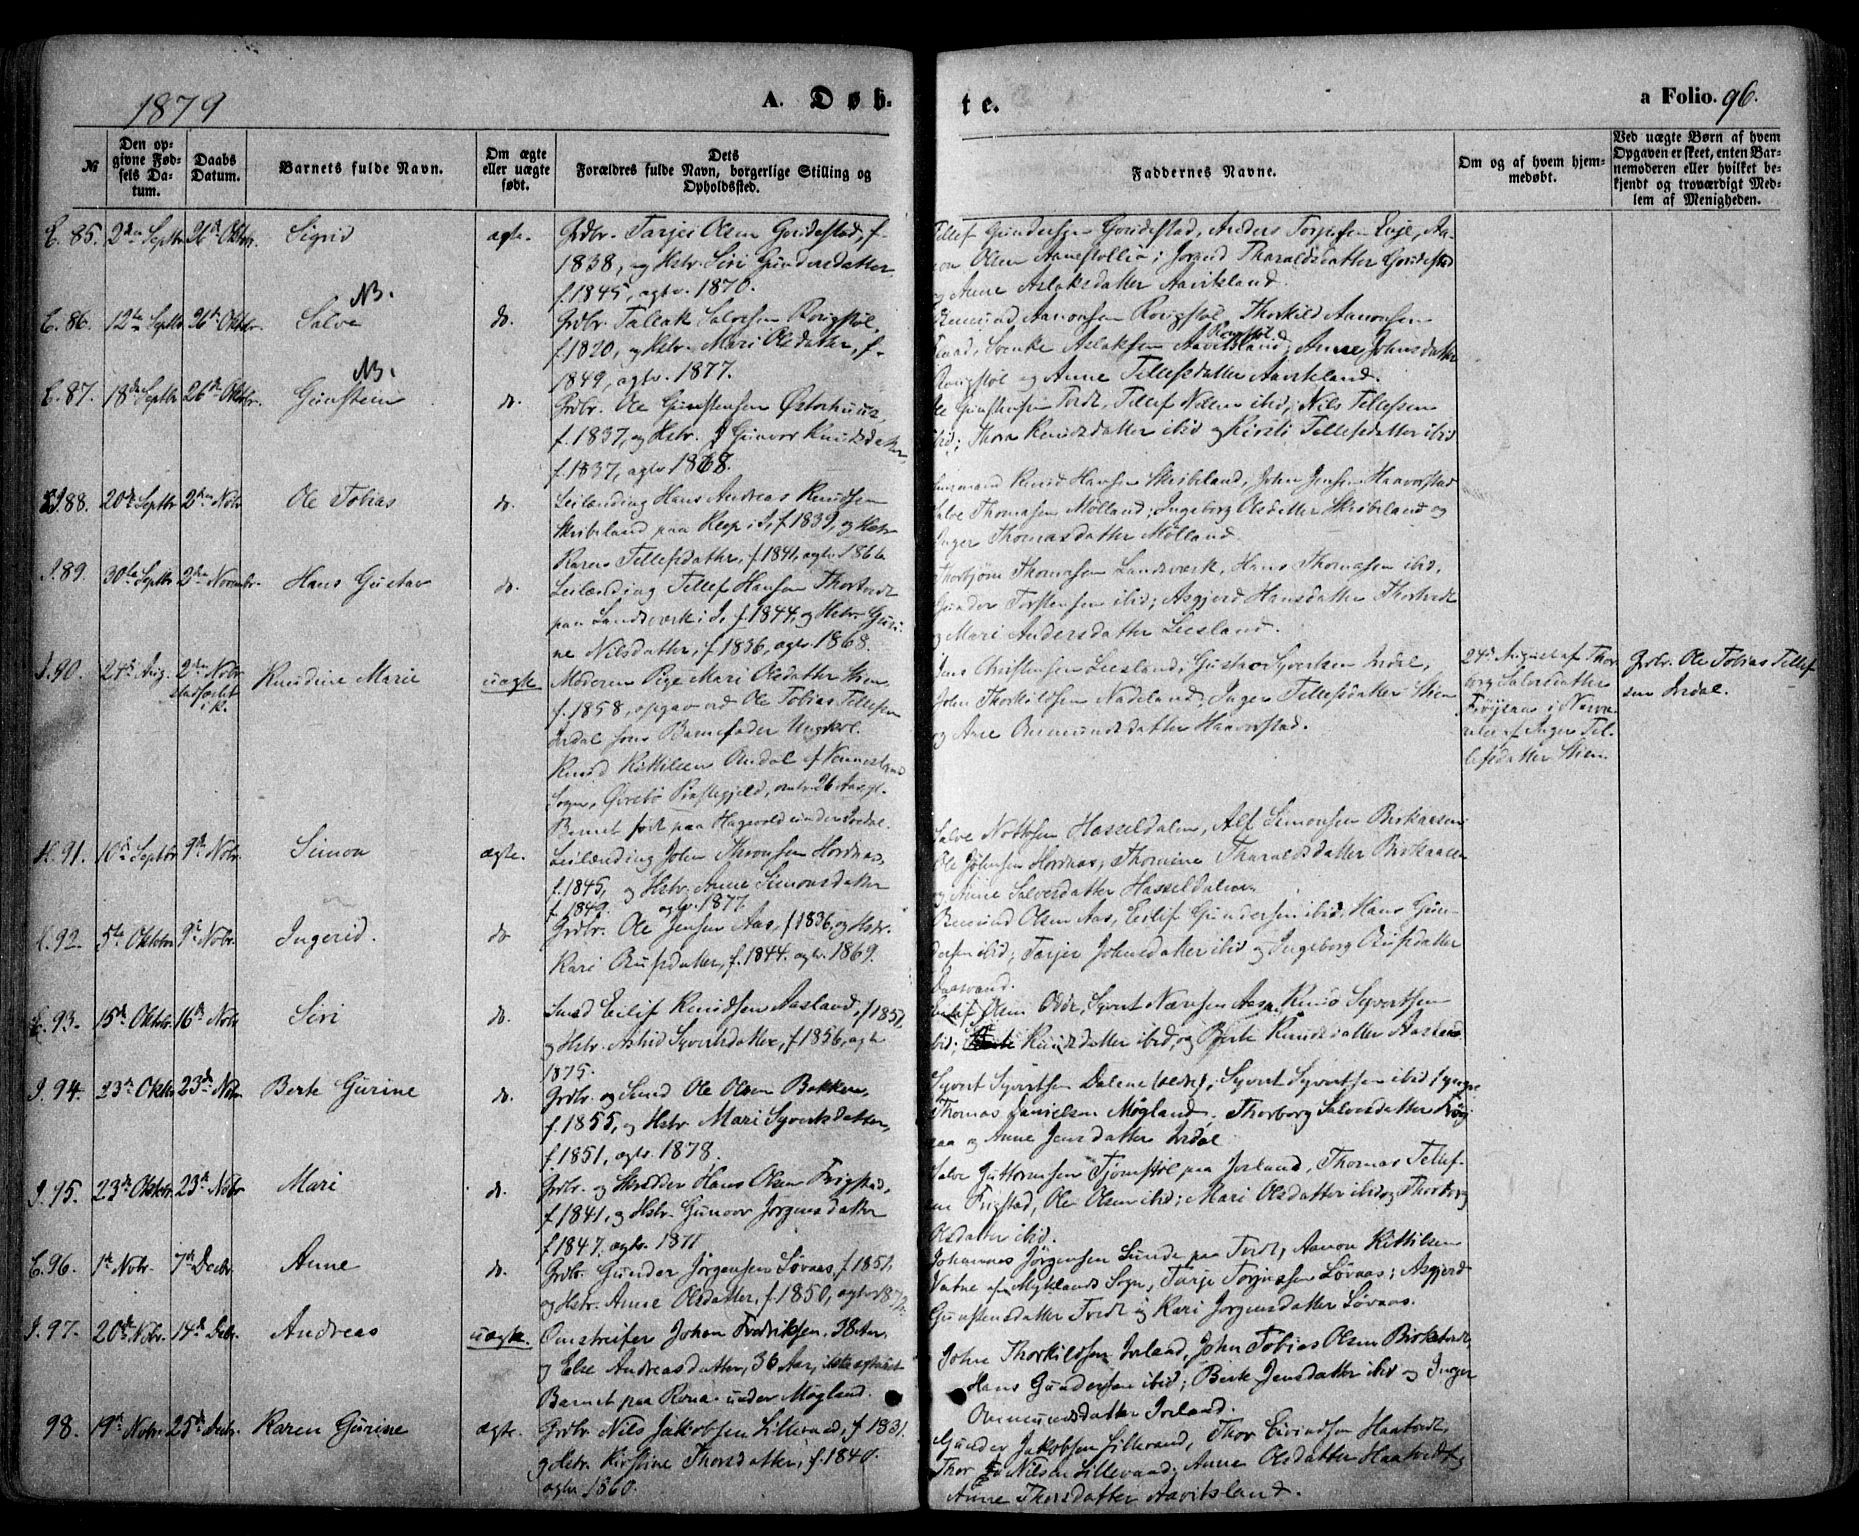 1879
A. Døb.
te.
a Folio. 96.
№
Den op-
givne Fød-
sels Da-
tum.
Daabs
Datum.
Barnets fulde Navn.
Om ægte
eller uægte
født.
Dets
Forældres fulde Navn, borgerlige Stilling og
Opholdssted.
Faddernes Navne.
Om og af hvem hjem-
medøbt.
Ved uægte Børn af hvem
Opgaven er skeet, enten Bar-
nemoderen eller hvilket be-
kjendt og troværdigt Med-
lem af Menigheden.
E. 85. 2den Septbr. 26de Oktbr. Sigrid ægte. Grdbr. Tarjei Olsen Gonidestad, f.
1838, og Hstr. Siri Gundersdatter,
f. 1845, agtv. 1870.
Tellef Gundersen Gonidestad, Anders Torjesen Euje, Aa-
non Olsen Aanestøllia; Jorand Tharaldsdatter Gonidestad
og Anne Aslaksdatter Aavitsland.
NB.
E. 86. 12te Septbr. 26de Oktbr. Salve do. Grdbr. Tallak Salvesen Rougstøl,
f. 1820, og Hstr. Mari Olsdatter, f.
1849, agtv. 1877.
Remund Aanonsen Rougstøl, Thorkild Aanonsen
Svenke Aslaksen Aavitsland, Anne Johnsdatter
Rougstøl og Anne Tellefsdatter Aavitsland.
NB.
E. 87. 18de Septbr. 26de Oktbr. Gunstein do. Grdbr. Ole Gunstensen Østerhuus,
f. 1837, og Hstr. Gunvor Knudsdatter,
f. 1837, agtv. 1868.
Ole Gunstensen Tvedt, Tellef Nilsen ibid, Nils Tellefsen
ibid; Thora Knudsdatter ibid og Kirsti Tellefsdatter ibid
I. 88. 20de Septbr. 2den Nobr. Ole Tobias do. Leilænding Hans Andreas Knudsen
Skribeland paa Reep i I., f. 1839, og Hstr.
Karen Tellefsdatter, f. 1841, agtv. 1866
Knud Hansen Skribeland, John Jensen Haavorstad
Salve Thomasen Mølland; Ingeborg Olsdatter Skribeland og
Inger Thomasdatter Mølland.
I. 89. 30te Septbr. 2den Novembr. Hans Gustav do. Leilænding Tellef Hansen Thortvedt
paa Landsverk i I., f. 1844, og Hstr. Guri-
ne Nilsdatter, f. 1836, agtv. 1868.
Thorbjørn Thomasen Landsverk, Hans Thomasen ibid,
Gunder Torstensen ibid; Asgjerd Hansdatter Thortvedt
og Mari Andersdatter Liesland.
I. 90. 24de Aug. 2den Nobr. Knudine Marie uægte Moderen Pige Mari Olsdatter Stien
stadfæstet
i K.
f. 1858, opgav ved Ole Tobias Tellefsen
Indal som Barnefader Ungkarl
Knud Kittilsen Omdal af Vennesland
Sogn, Øvrebø Præstegjeld, omtr. 26 Aar gl.
Barnet født paa Hagevold under Indal.
Jens Christensen Liesland, Gustav Syvertsen Indal,
John Thorkildsen Nadeland; Inger Tellefsdatter Stien
og Anne Osmundsdatter Haavorstad.
24de August af Thor-
borg Salvesdatter
Frøjsaas i Nærvæ-
relse af Inger Tel-
lefsdatter Stien
Grbr. Ole Tobias Tellef-
sen Indal.
H. 91. 10de Septbr. 9de Nobr. Simon ægte. Leilænding John Thronsen Hordnæs,
f. 1845, og Hstr. Anne Simonsdatter
f. 1849. agtv. 1877.
Salve Nottosen Hasseldalen, Alf Simonsen Birkaasen
Ole Johnsen Hordnæs, Thomine Tharaldsdatter Birkaasen
og Anne Salvesdatter Hasseldalen
H. 92. 5te Oktobr. 9de Nobr. Ingerid. do. Grdbr. Ole Jensen Aas, f. 1836, og Hstr.
Kari Onufsdatter, f. 1844. agtv. 1869.
Remund Olsen Aas, Eilif Gundersen ibid, Hans Gun-
dersen ibid; Tarjer Johnsdatter ibid og Ingeborg Onufsdatter
Daasvand.
E. 93. 15de Oktbr. 16de Nobr. Siri do. Smed Eilif Knudsen Aasland, f. 1851,
og Hstr. Astrid Syvertsdatter, f. 1856, agtv
1875.
Eilif Olsen Odde, Syvert Næresen Aas, Knud Syvertsen
ibid; Knudsdatter ibid, og Berte Knudsdatter Aasland
I. 94. 23de Oktbr. 23de Nobr. Berte Gurine do. Grdbr. og Smed Ole Olsen Bakken,
f. 1855, og Hstr. Mari Syvertsdatter,
f. 1851, agtv. 1878.
Syvert Syvertsen Dalene (ældre), Syvert Syvertsen ibid (yngre
Thomas Danielsen Møgland, Thorborg Salvesdatter Frøj-
saa og Anne Jensdatter Indal
I. 95. 23de Oktbr. 23de Nobr. Mari do. Grdbr. og Skrædder Hans Olsen Frigstad,
f. 1841, og Hstr. Gunvor Jørgensdatter
f. 1847. agtv. 1871.
Salve Guttormsen Tjomstøl paa Iveland, Thomas Tellef-
sen Frigstad, Ole Olsen ibid; Mari Olsdatter ibid og Thorborg
Olsdatter ibid.
E. 96. 1ste Nobr. 7de Decbr. Anne do. Grdbr. Gunder Jørgensen Løvaas, f. 1851,
og Hstr. Anne Olsdatter, f. 1850, agtv. 187
Johannes Jørgensen Lunde paa Tvedt, Aanon Kittilsen
Vatne af Myklands Sogn, Tarje Torjussen Løvaas; Asgjerd
Gunstensdatter Tvedt og Kari Jørgensdatter Løvaas.
I. 97. 20de Nobr. 14de Debr. Andreas uægte Omstreifer Johan Fredriksen, 38 Aar,
og Else Andreasdatter, 36 Aar,
Barnet paa Rona under Møgland.
John Thorkildsen Iveland, John Tobias Olsen Birketvedt,
Hans Gundersen ibid; Berte Jensdatter ibid og Inger
Osmundsdatter Iveland.
98. 19de Nobr. 25de Decbr. Karen Gurine ægte. Grdbr. Nils Jakobsen Lillevand, f. 1831.
og Hstr. Kirstine Thorsdatter, f. 1840.
agtv. 1860.
Gunder Jakobsen Lillevand, Thor Eivindsen Haatvedt,
Thor Nilsen Lillevand; Anne Olsdatter Haatvedt og
Anne Thorsdatter Aavitsland.